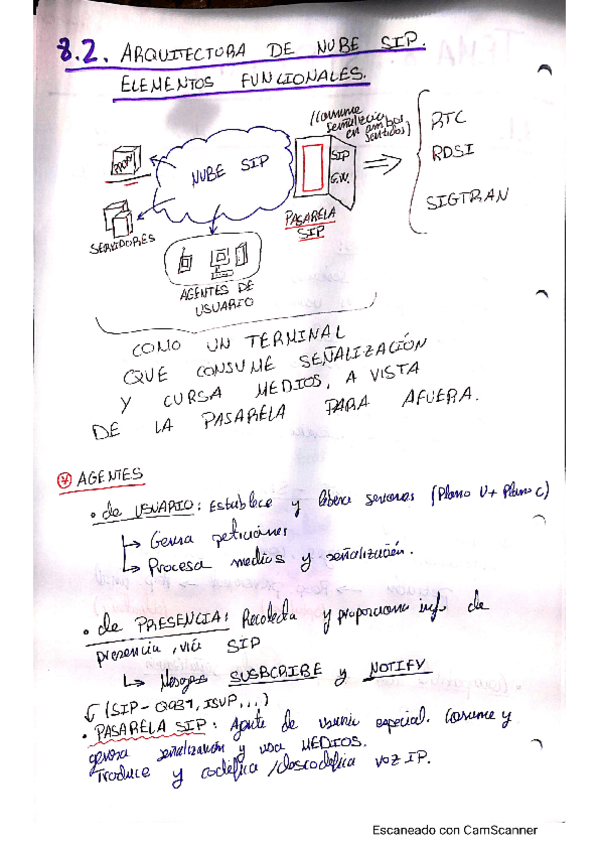 8.2. ARQUITECTURA DE NUBE SIP.
ELEMENTOS FUNCIONALES.
(Consume
señalización
en ambos
sentidos)
PROXY
NUBE SIP
SIP
G.W.
RTC
RDSI
SIGTRAN
SERVIDORES
PASARELA
SIP
AGENTES DE
USUARIO
COMO UN TERMINAL
QUE CONSUME SEÑALIZACIÓN
Y CURSA MEDIOS, A VISTA
DE LA PASARELA PARA AFUERA.
* AGENTES
• de USUARIO: Establece y libera sesiones (Plano U + Plano C)
↳ Genera peticiones
↳ Procesa medios y señalización.
• de PRESENCIA: Recolecta y proporciona inf. de
presencia, vía SIP
↳ Mensajes SUSBCRIBE y NOTIFY
(SIP - Q931, ISUP, ...)
• PASARELA SIP: Agente de usuario especial. Consume y
genera señalización y usa MEDIOS.
Traduce y codifica / descodifica voz IP.
Escaneado con CamScanner